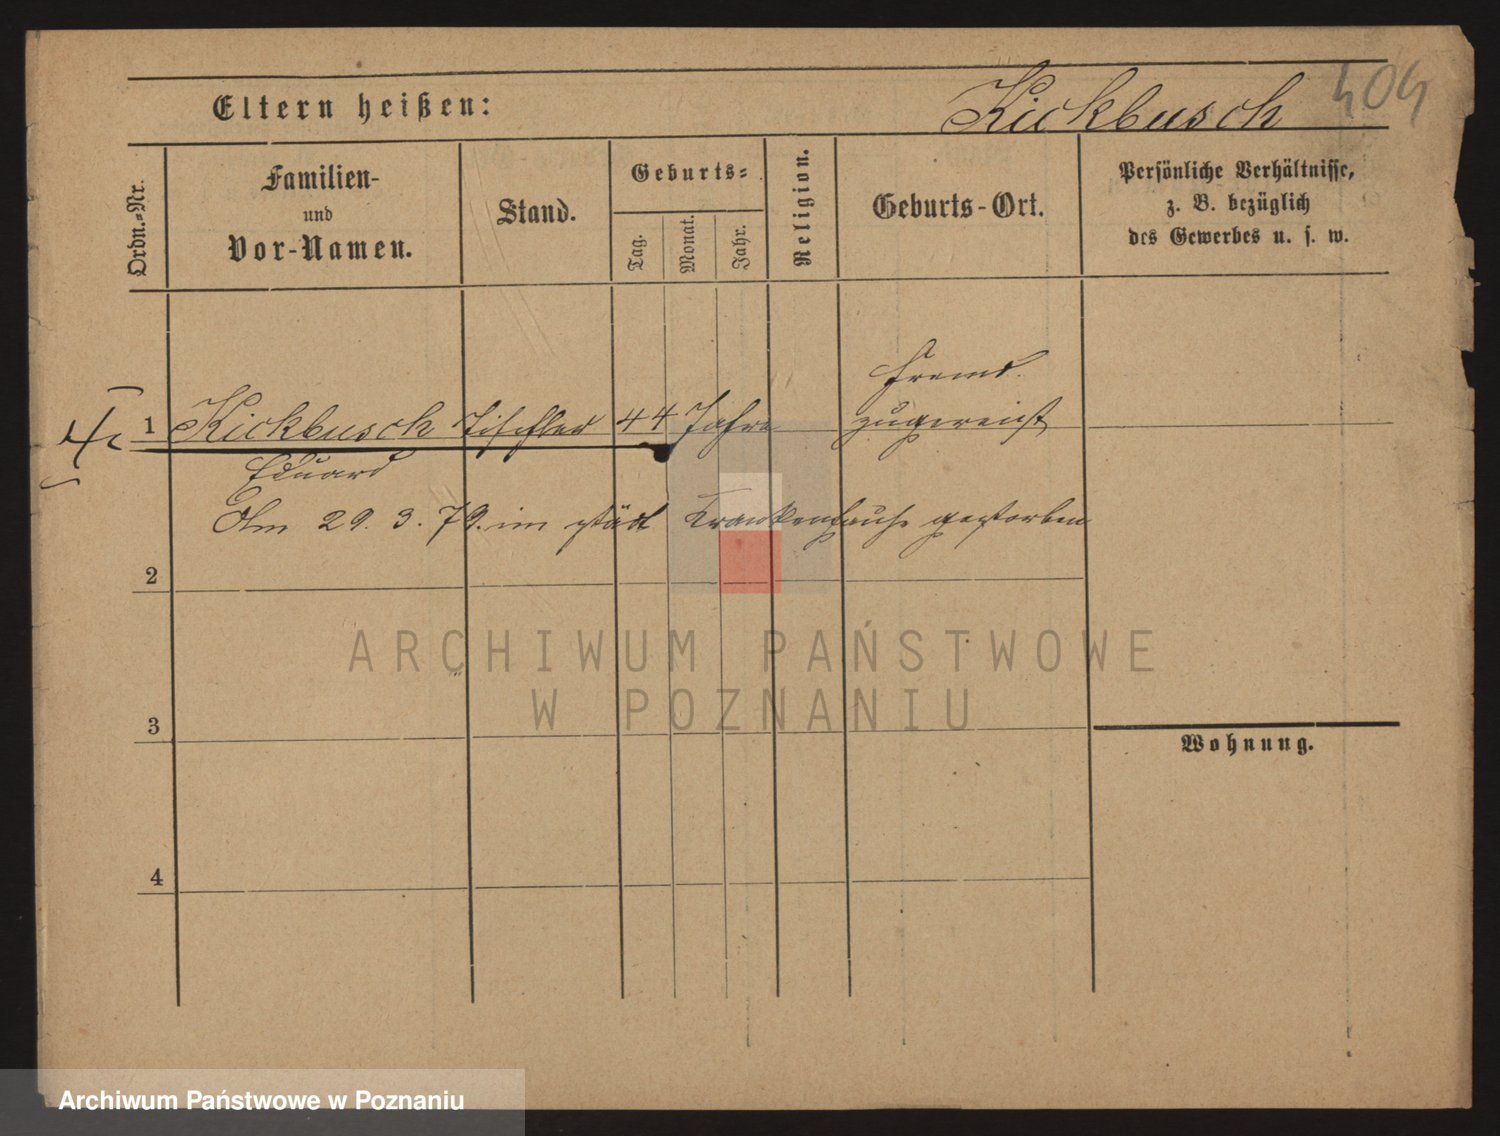 404
Eltern heißen: Kickbusch
Ordn.=Nr.
Familien-
und
Vor-Namen.
Stand.
Geburts=
Tag.
Monat.
Jahr.
Religion.
Geburts-Ort.
Persönliche Verhältnisse,
z. B. bezüglich
des Gewerbes u. s. w.
fremd
1 Kickbusch Tischler 44 Jahre zugereist
Eduard
Am 29. 3. 79. im städt Krankenhause gestorben
2
3
4
Wohnung.
ARCHIWUM PAŃSTWOWE
W POZNANIU
Archiwum Państwowe w Poznaniu